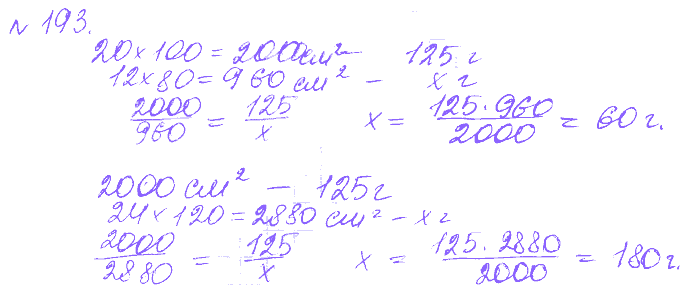 № 193.
20 × 100 = 2000 см² — 125 г
12 × 80 = 960 см² — x г
2000/960 = 125/x   x = 125 · 960/2000 = 60 г.
2000 см² — 125 г
24 × 120 = 2880 см² — x г
2000/2880 = 125/x   x = 125 · 2880/2000 = 180 г.